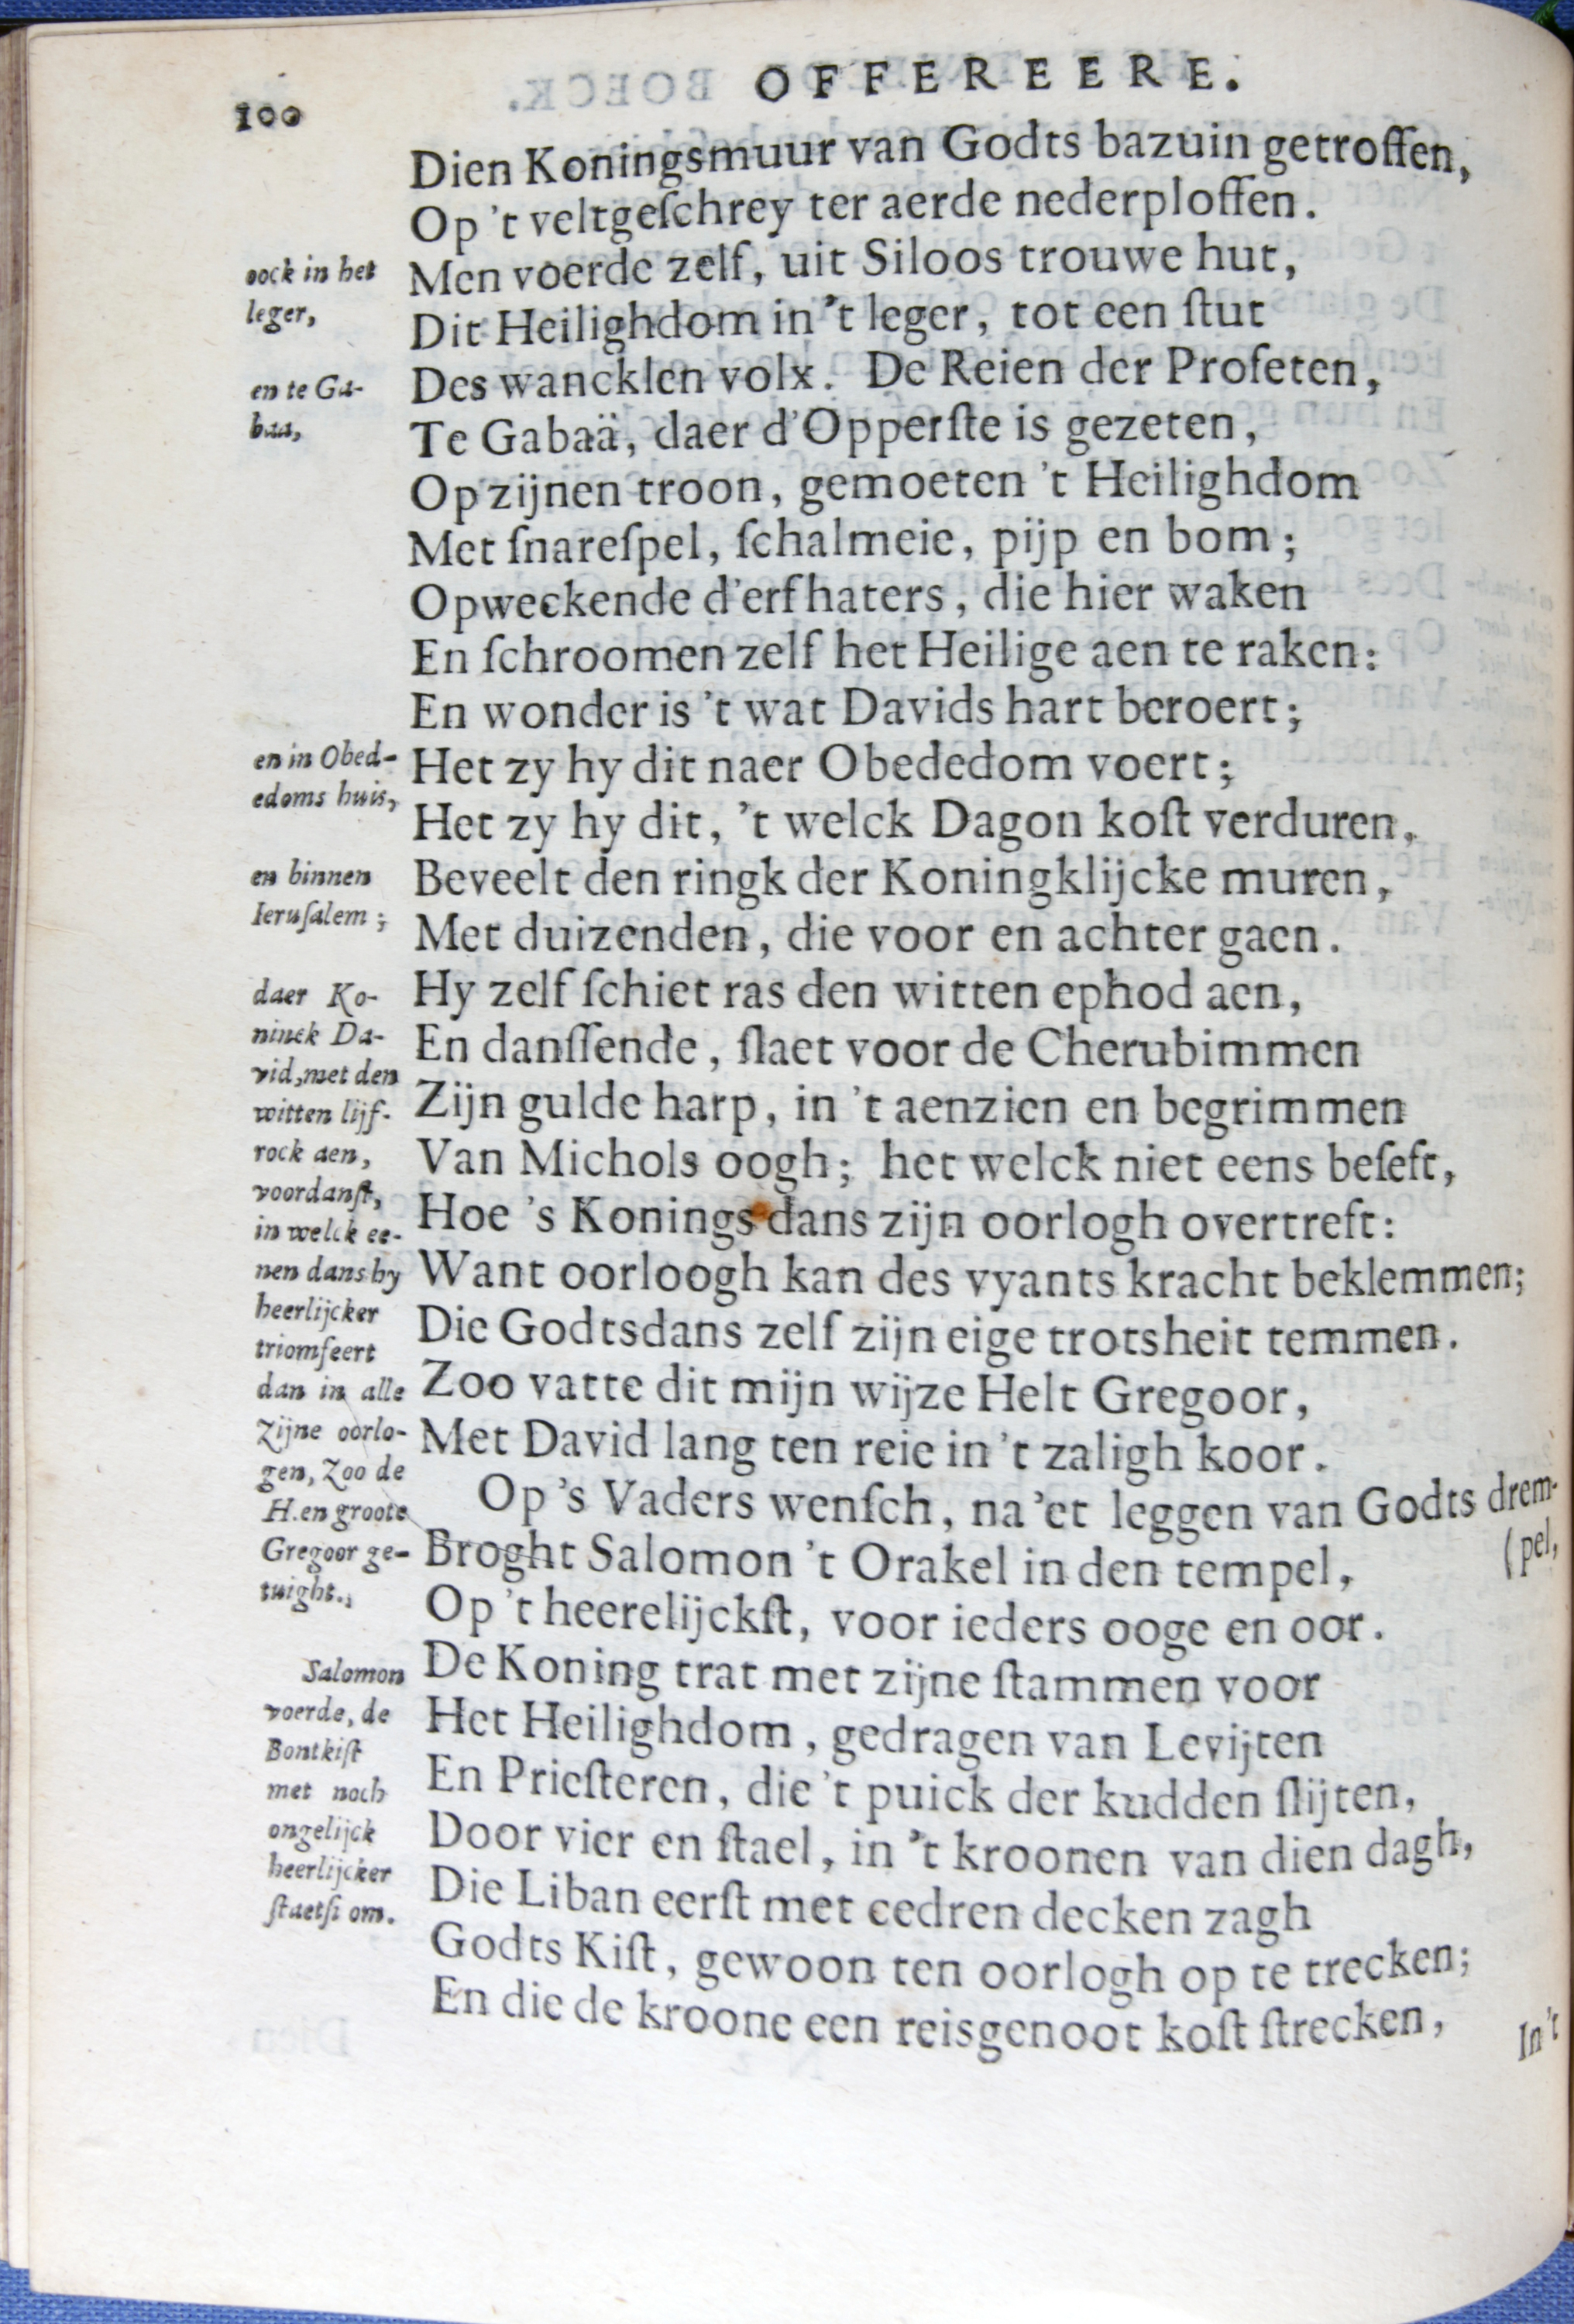 100
OFFEREERE.
Dien Koningsmuur van Godts bazuin getroffen,
Op 't veltgeſchrey ter aerde nederploffen.
oock in het
leger,
Men voerde zelf, uit Siloos trouwe hut,
Dit Heilighdom in 't leger, tot een ſtut
en te Ga-
baa,
Des wancklen volx. De Reien der Profeten,
Te Gabaä, daer d'Opperſte is gezeten,
Op zijnen troon, gemoeten 't Heilighdom
Met ſnareſpel, ſchalmeie, pijp en bom;
Opweckende d'erfhaters, die hier waken
En ſchroomen zelf het Heilige aen te raken:
En wonder is 't wat Davids hart beroert;
en in Obed-
edoms huis,
Het zy hy dit naer Obededom voert;
Het zy hy dit, 't welck Dagon koſt verduren,
en binnen
Ieruſalem;
Beveelt den ringk der Koningklijcke muren,
Met duizenden, die voor en achter gaen.
daer Ko-
ninck Da-
vid, met den
witten lijf-
rock aen,
voordanſt,
in welck ee-
nen dans hy
heerlijcker
triomfeert
dan in alle
zijne oorlo-
gen, zoo de
H. en groote
Gregoor ge-
tuight.
Hy zelf ſchiet ras den witten ephod aen,
En danſſende, ſlaet voor de Cherubimmen
Zijn gulde harp, in 't aenzien en begrimmen
Van Michols oogh; het welck niet eens beſeft,
Hoe 's Konings dans zijn oorlogh overtreft:
Want oorloogh kan des vyants kracht beklemmen;
Die Godtsdans zelf zijn eige trotsheit temmen.
Zoo vatte dit mijn wijze Helt Gregoor,
Met David lang ten reie in 't zaligh koor.
Op 's Vaders wenſch, na 'et leggen van Godts drem-
(pel,
Broght Salomon 't Orakel in den tempel,
Op 't heerelijckſt, voor ieders ooge en oor.
Salomon
voerde, de
Bontkiſt
met noch
ongelijck
heerlijcker
ſtaetſi om.
De Koning trat met zijne ſtammen voor
Het Heilighdom, gedragen van Levijten
En Prieſteren, die 't puick der kudden ſlijten,
Door vier en ſtael, in 't kroonen van dien dagh,
Die Liban eerſt met cedren decken zagh
Godts Kiſt, gewoon ten oorlogh op te trecken;
En die de kroone een reisgenoot koſt ſtrecken,
In 't